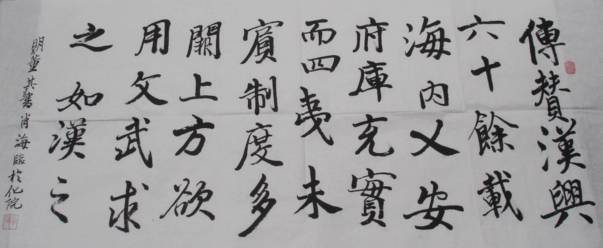 傳贊漢興
六十餘載
海内乂安
府庫充實
而四夷未
賓制度多
闕上方欲
用文武求
之如漢之
明董其書肖海臨於化院